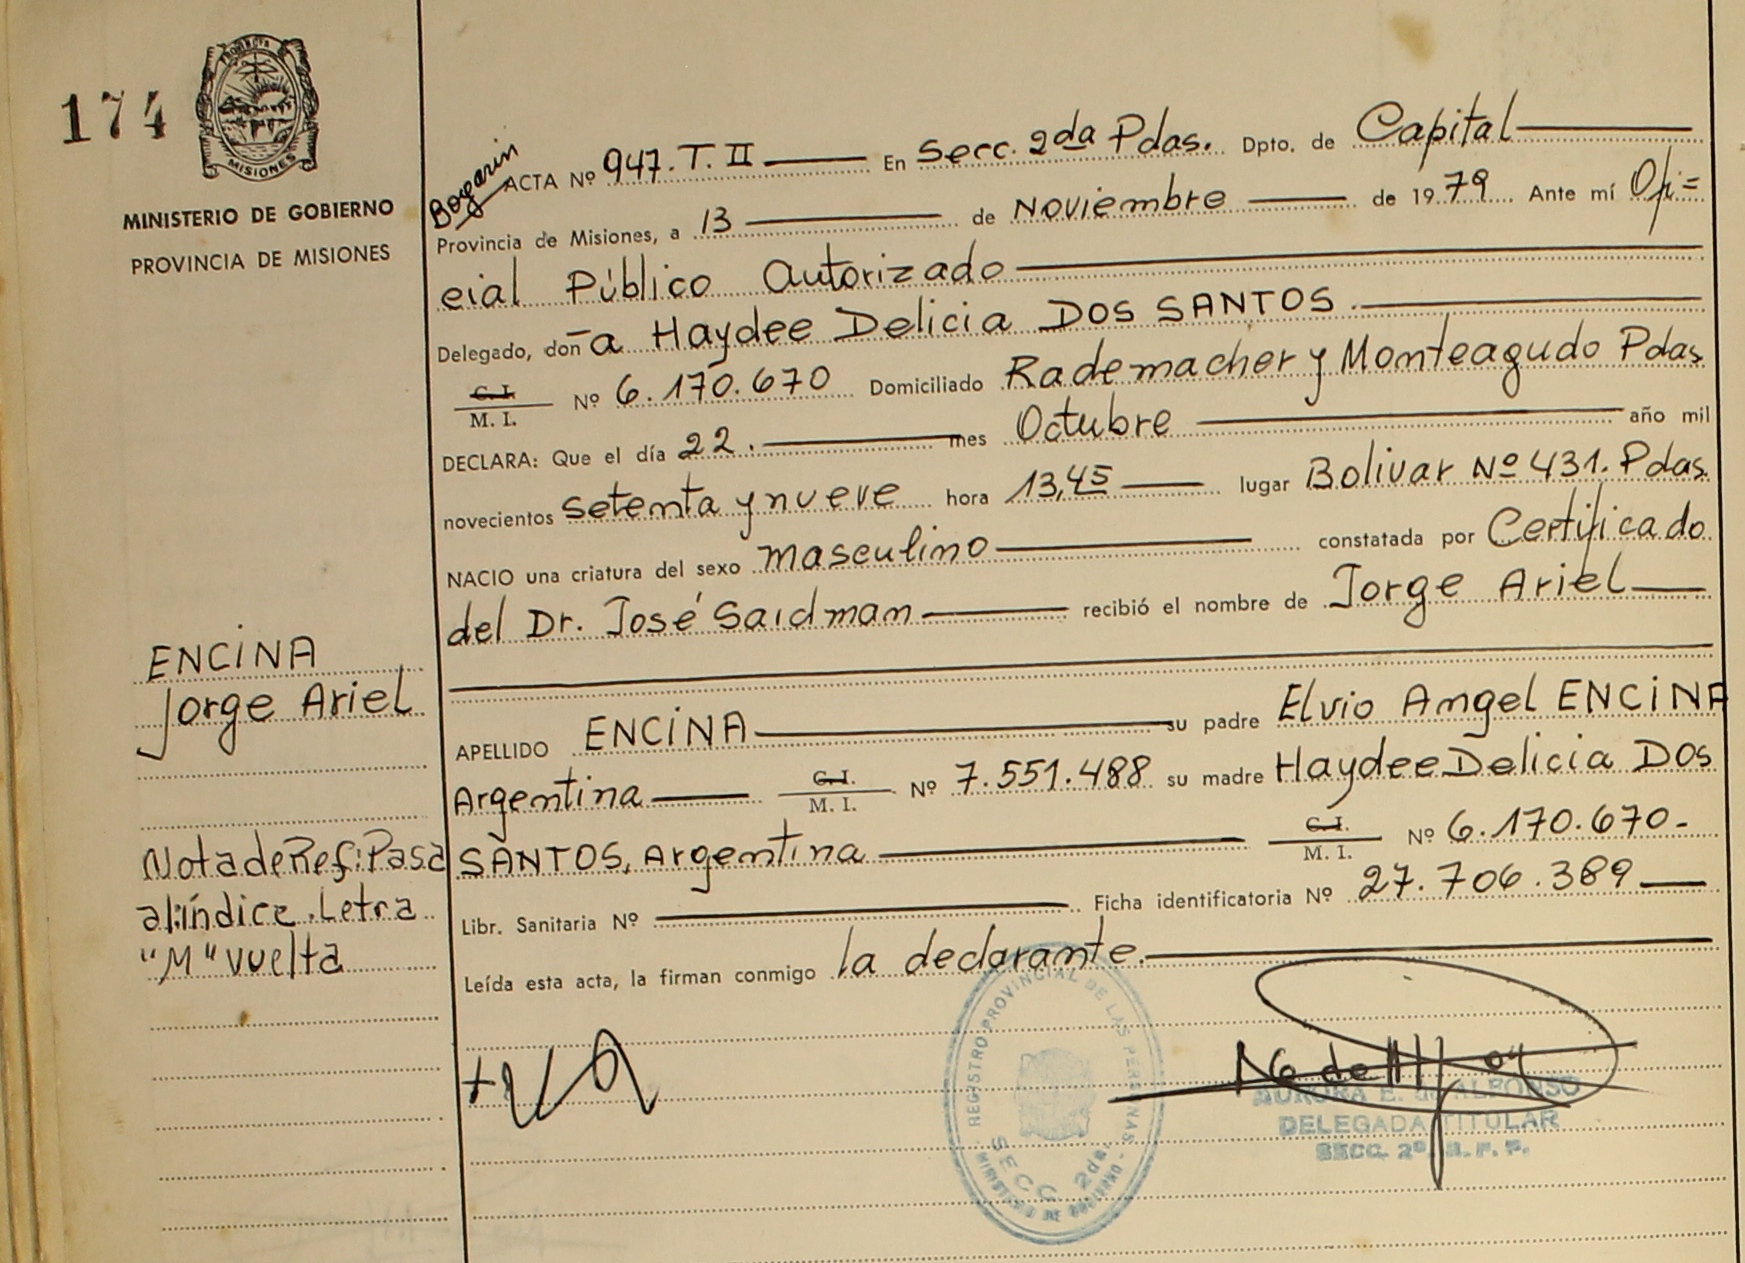 174
PROVINCIA
MISIONES
MINISTERIO DE GOBIERNO
PROVINCIA DE MISIONES
Bogarin
ACTA Nº 947. T. II En Secc. 2da Pdas. Dpto. de Capital
Provincia de Misiones, a 13 de Noviembre de 1979 Ante mí Ofi=
cial Público Autorizado
Delegado, don a Haydee Delicia DOS SANTOS.
C. I.
M. I. Nº 6.170.670 Domiciliado Rademacher y Monteagudo Pdas.
DECLARA: Que el día 22. mes Octubre año mil
novecientos setenta y nueve hora 13,45 lugar Bolivar Nº 431. Pdas.
NACIO una criatura del sexo masculino constatada por Certificado
del Dr. José Saidman recibió el nombre de Jorge Ariel
ENCINA
Jorge Ariel
APELLIDO ENCINA su padre Elvio Angel ENCINA
Argentina C. I.
M. I. Nº 7.551.488 su madre Haydee Delicia DOS
SANTOS, Argentina C. I.
M. I. Nº 6.170.670-
Nota de Ref: Pasa
al índice. Letra
"M" vuelta
Libr. Sanitaria Nº Ficha identificatoria Nº 27.706.389
Leída esta acta, la firman conmigo la declarante.
REGISTRO PROVINCIAL DE LAS PERSONAS
SECC 2da.
MINISTERIO DE GOBIERNO
AURORA E. de ALFONSO
DELEGADA TITULAR
SECC. 2ª